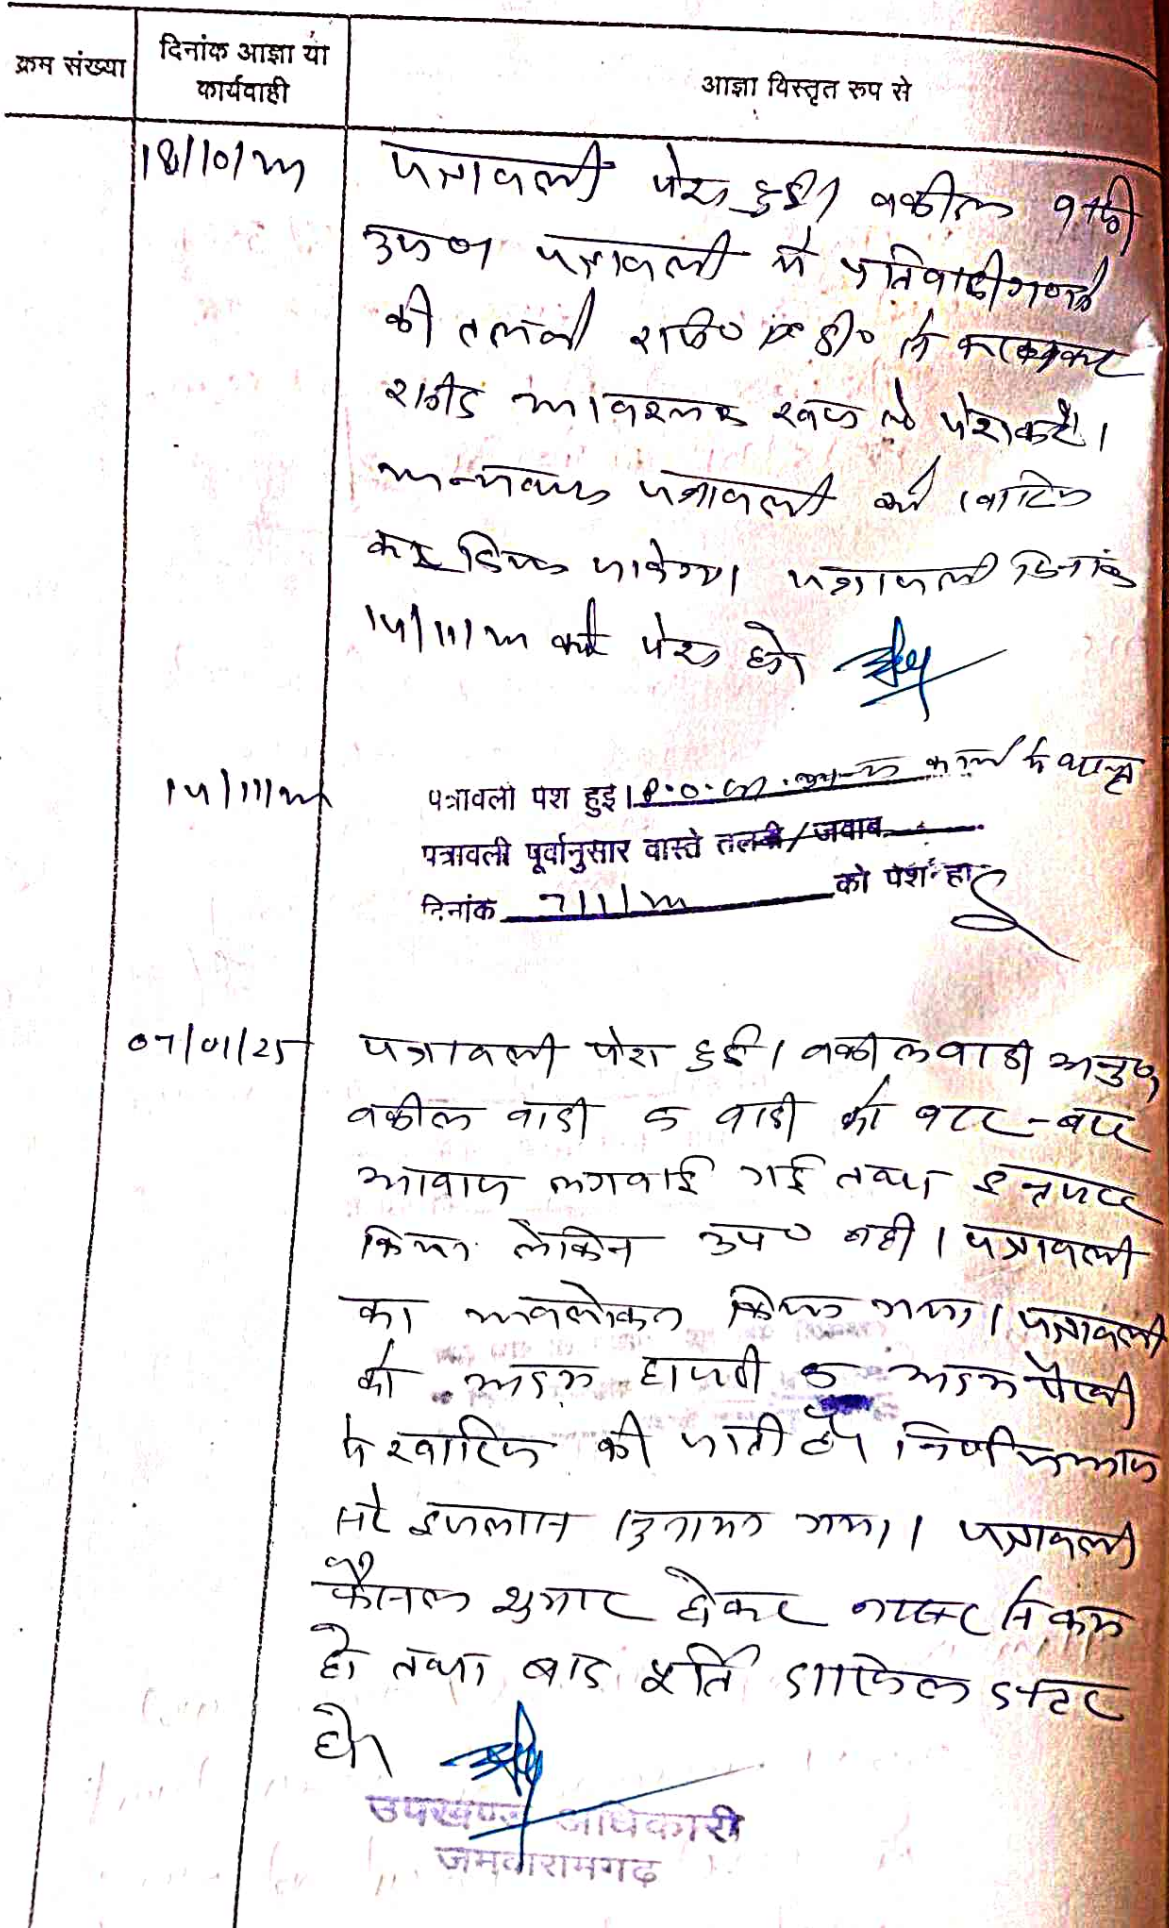 क्रम संख्या
दिनांक आज्ञा या
कार्यवाही
आज्ञा विस्तृत रूप से
18/10/24
पत्रावली पेश हुई। वकील वादी
उप० पत्रावली में प्रतिवादीगण
की तलबी
आवश्यक रूप से पेश करें।
अन्यथा पत्रावली को खारिज
कर दिया जावेगा। पत्रावली दिनांक
को पेश हो।
पत्रावली पेश हुई।
पत्रावली पूर्वानुसार वास्ते तलबी/जवाब
दिनांक 7/1/25 को पेश हो
07/01/25
पत्रावली पेश हुई। वकील वादी अनुप०
वकील वादी व वादी को बार-बार
आवाज लगवाई गई तथा इन्तजार
किया लेकिन उप० नही। पत्रावली
का अवलोकन किया गया। पत्रावली
को अदम हाजरी व अदम पैरवी
मे खारिज की जाती है। निर्णय आज
सरे इजलास सुनाया गया। पत्रावली
फैसल शुमार होकर नम्बर से कम
हो तथा बाद पूर्ति दाखिल दफ्तर
हो।
उपखण्ड अधिकारी
जमवारामगढ़